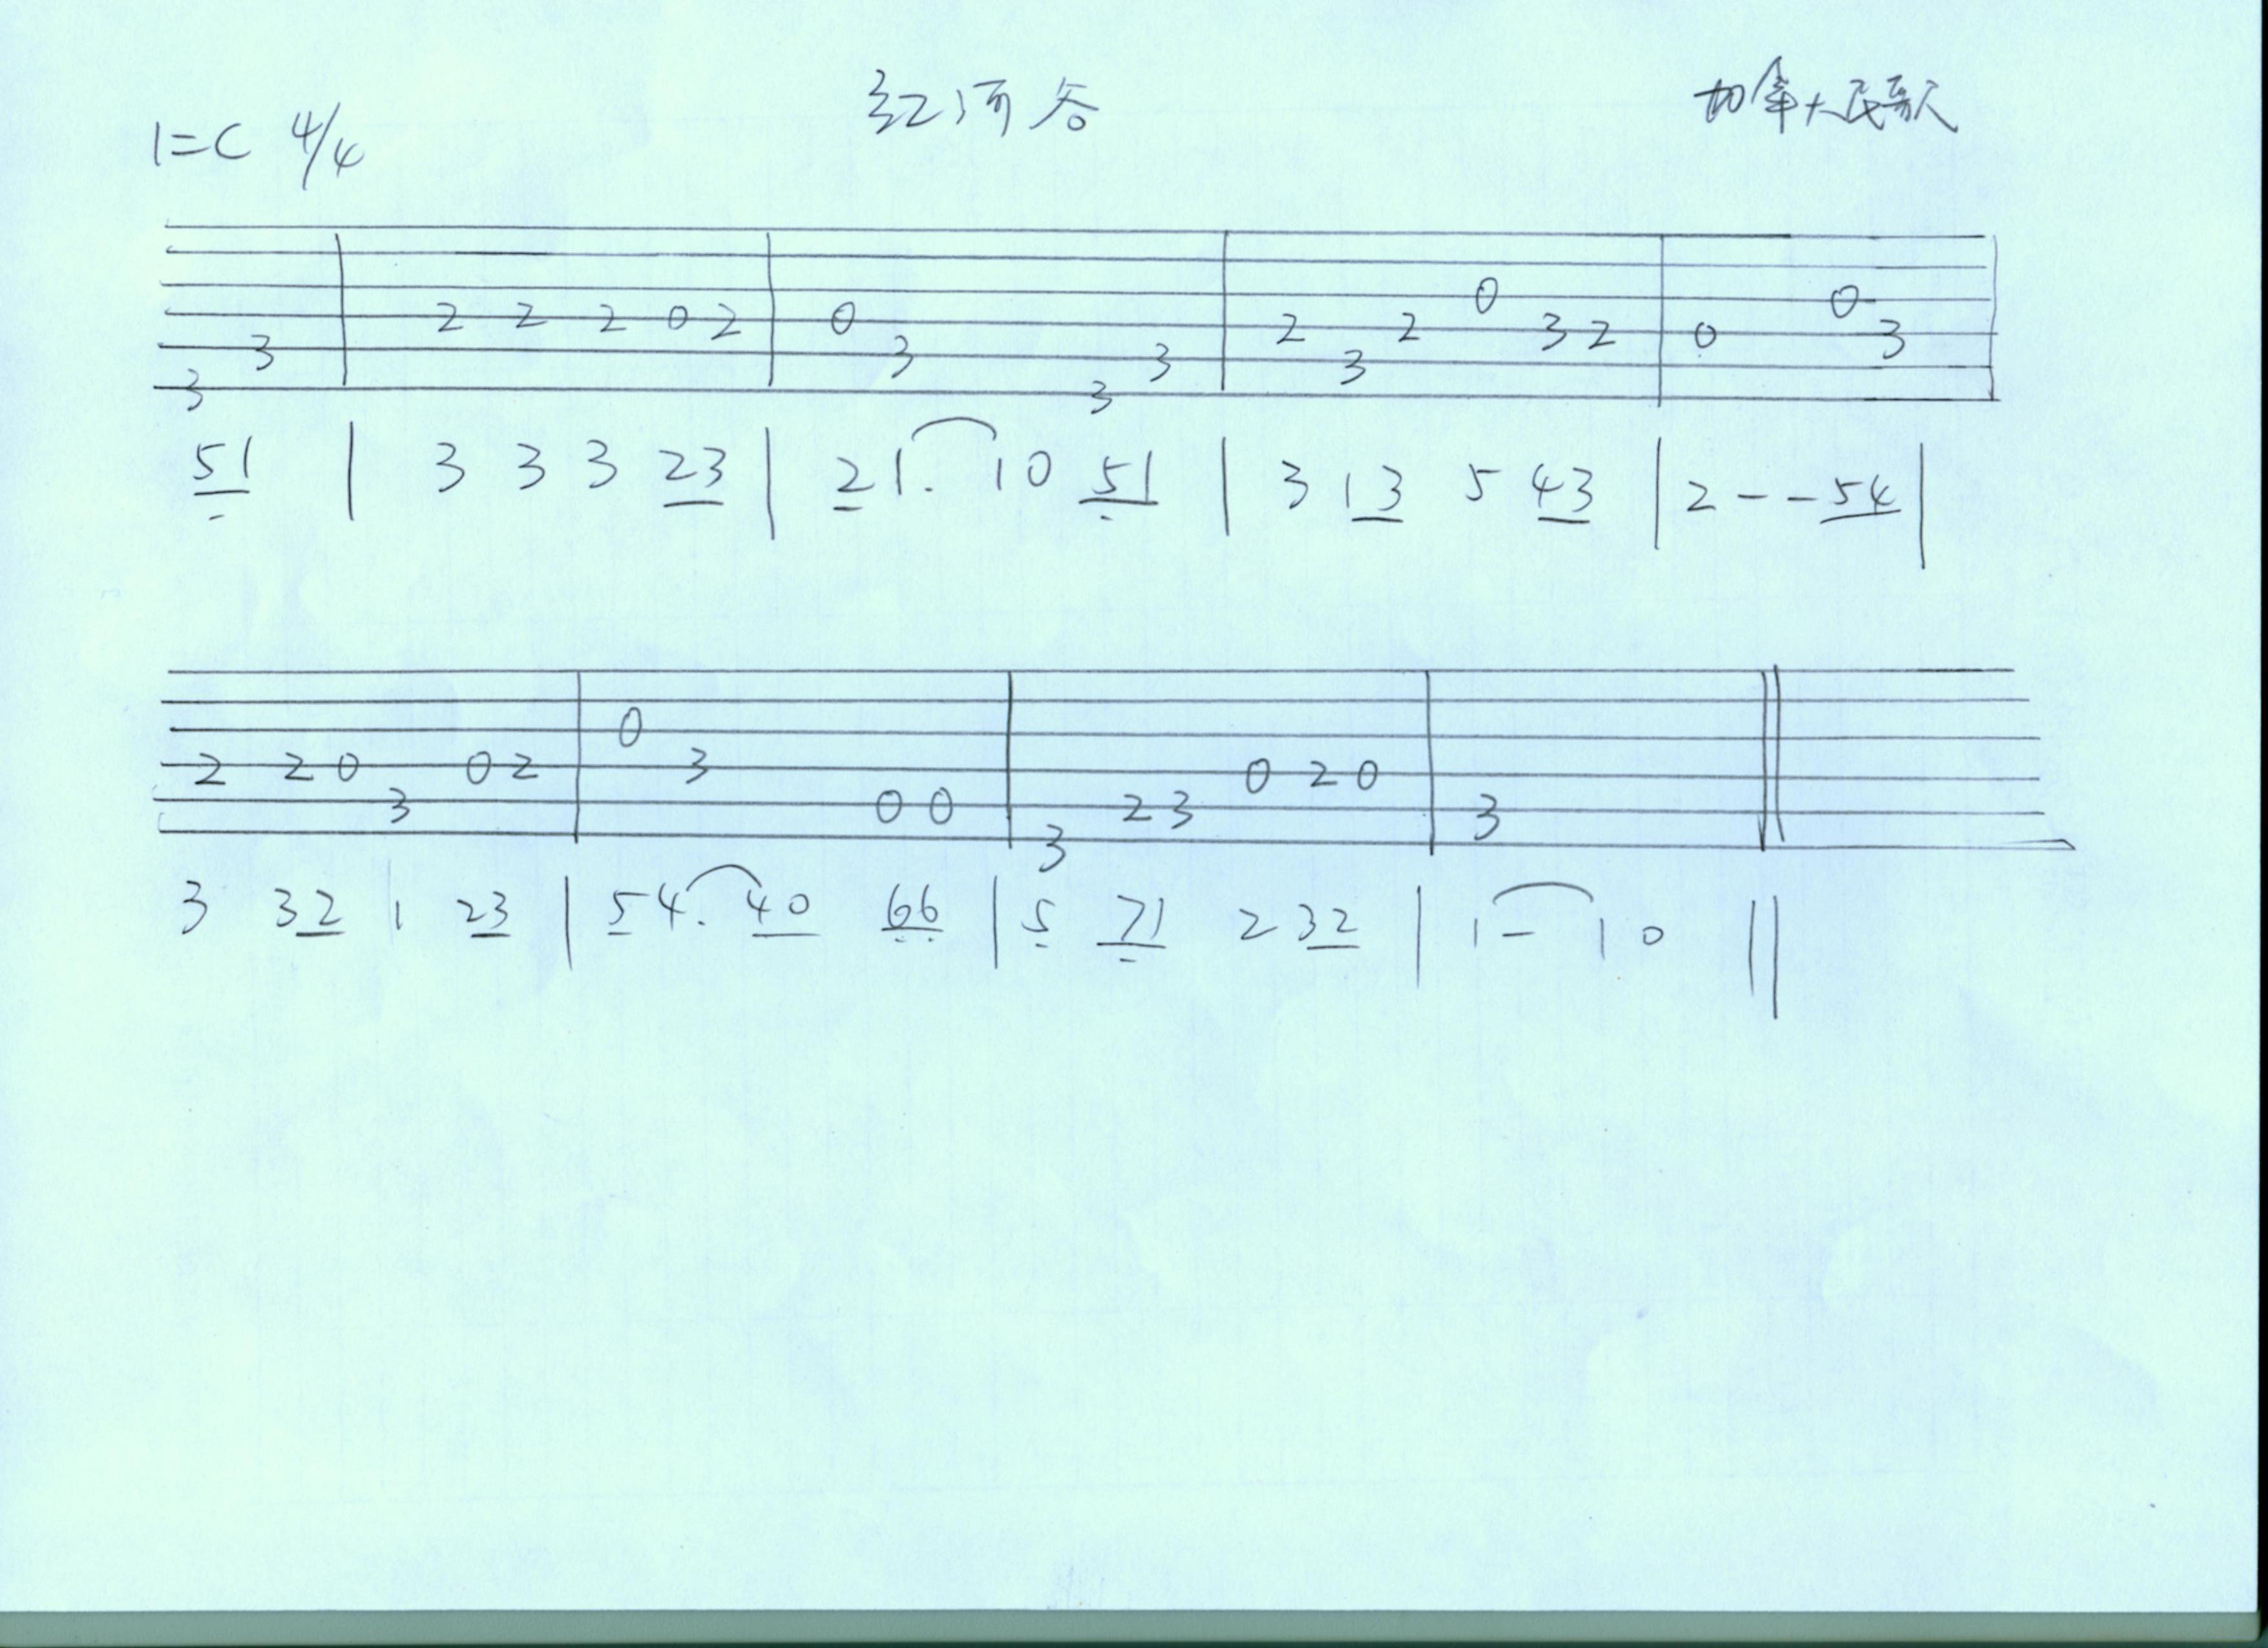 红河谷 加拿大民歌
1=C 4/4
3 3 | 2 2 2 0 2 | 0 3 3 3 | 2 3 2 0 3 2 | 0 0 3 |
51 | 3 3 3 23 | 21. 10 51 | 3 13 5 43 | 2 - - 54 |
2 2 0 3 0 2 | 0 3 0 0 | 3 2 3 0 2 0 | 3 ||
3 32 1 23 | 54. 40 66 | 5 71 2 32 | 1 - 1 0 ||